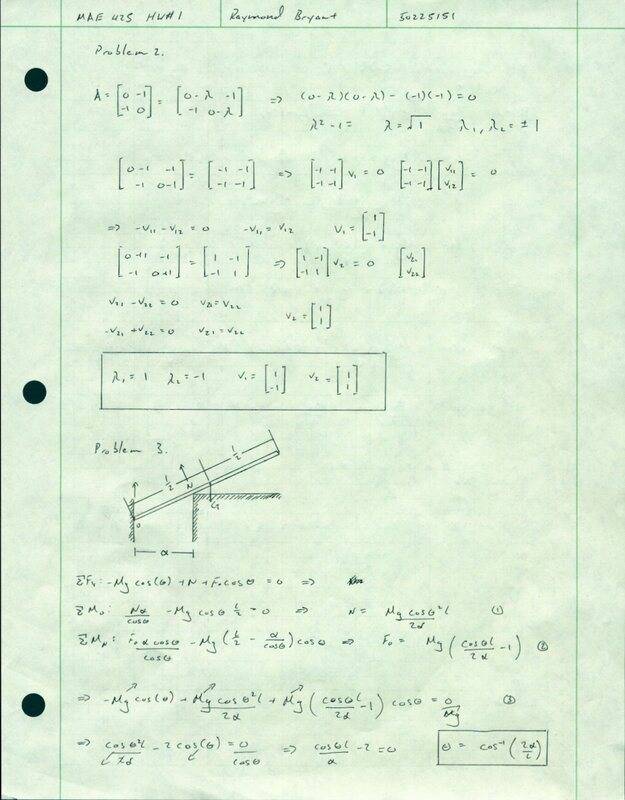 MAE 425 HW#1 Raymond Bryant 50225151
Problem 2.
A = [0 -1; -1 0] = [0-λ -1; -1 0-λ] => (0-λ)(0-λ) - (-1)(-1) = 0
λ² - 1 = λ = √1 λ₁, λ₂ = ±1
[0-1 -1; -1 0-1] = [-1 -1; -1 -1] => [-1 -1; -1 -1] v₁ = 0 [-1 -1; -1 -1] [v₁₁; v₁₂] = 0
=> -v₁₁ - v₁₂ = 0 -v₁₁ = v₁₂ v₁ = [1; -1]
[0+1 -1; -1 0+1] = [1 -1; -1 1] => [1 -1; -1 1] v₂ = 0 [v₂₁; v₂₂]
v₂₁ - v₂₂ = 0 v₂₁ = v₂₂ v₂ = [1; 1]
-v₂₁ + v₂₂ = 0 v₂₁ = v₂₂
λ₁ = 1 λ₂ = -1 v₁ = [1; -1] v₂ = [1; 1]
Problem 3.
L/2 L/2
N
G
o
α
ΣFy: -Mg cos(θ) + N + F₀ cos θ = 0 =>
ΣM₀: Nα/cosθ - Mg cosθ L/2 = 0 => N = Mg cosθ² L/2α (1)
ΣM_N: F₀ α cosθ/cosθ - Mg (L/2 - α/cosθ) cosθ => F₀ = Mg (cosθ L/2α - 1) (2)
=> -Mg cos(θ) + Mg cosθ² L/2α + Mg (cosθ L/2α - 1) cosθ = 0/Mg (3)
=> cosθ² L/α - 2 cos(θ) = 0/cosθ => cosθ L/α - 2 = 0 θ = cos⁻¹ (2α/L)